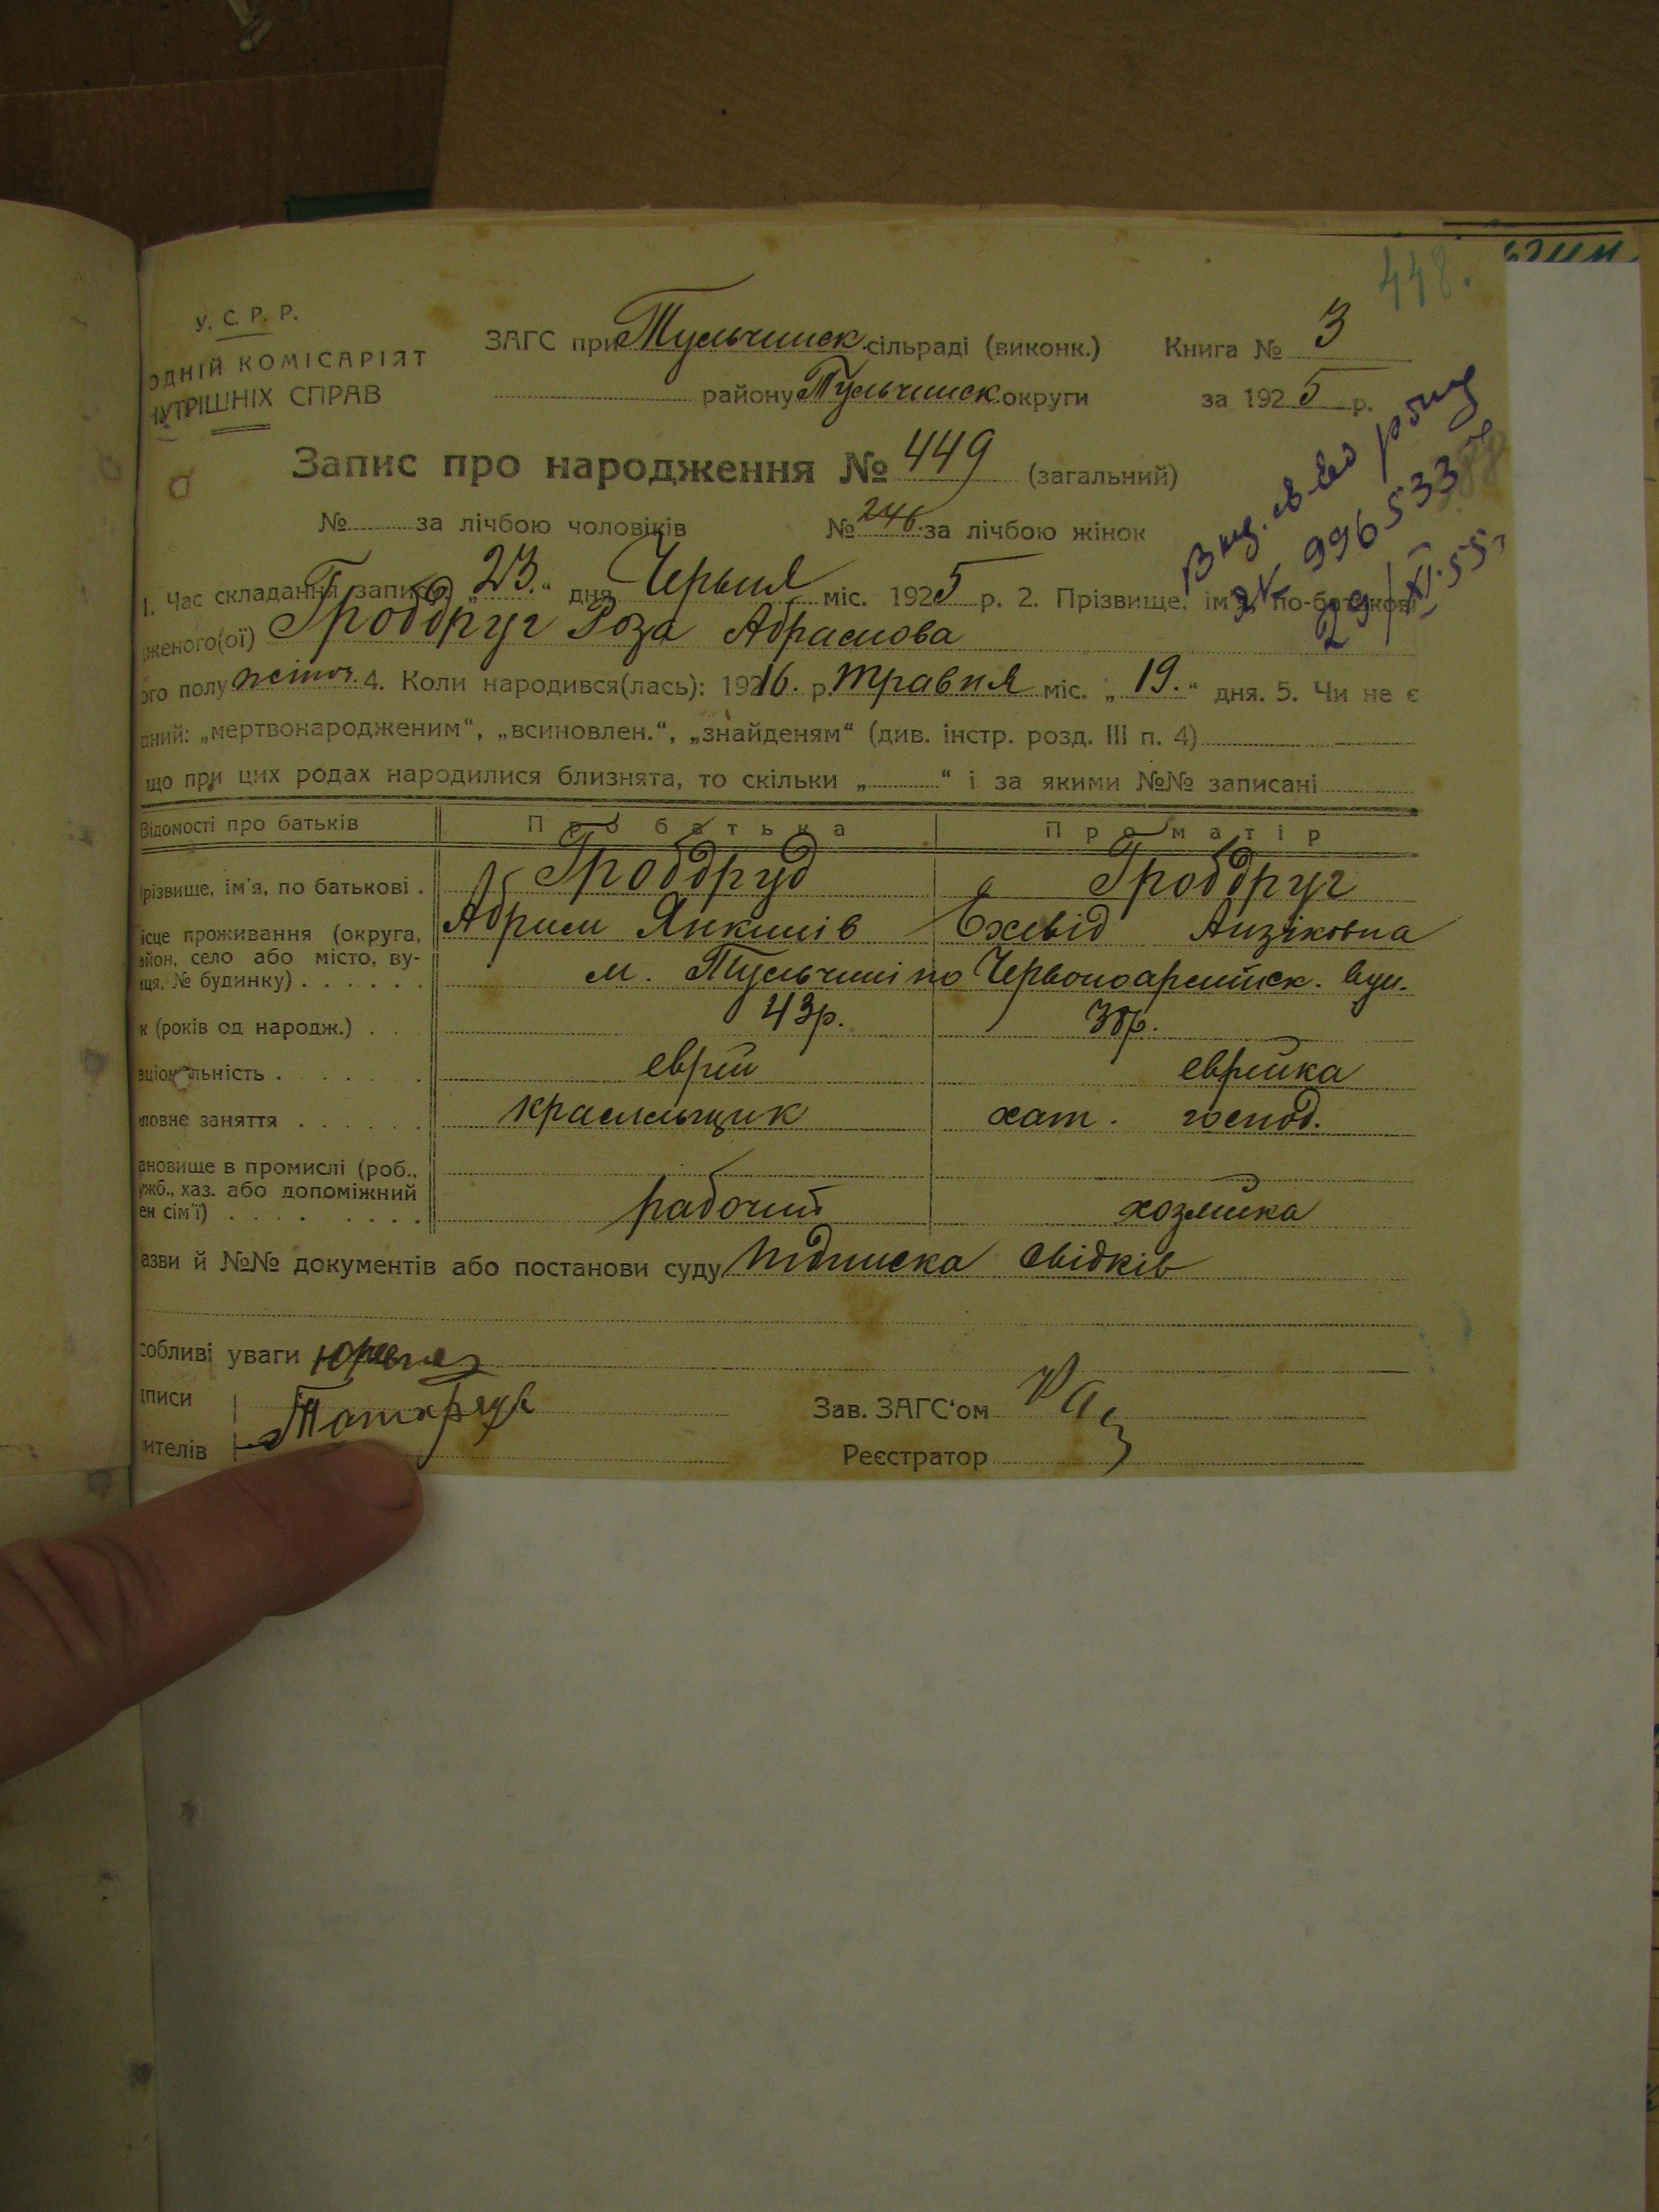 448.
У. С. Р. Р.
ОДНІЙ КОМІСАРІЯТ
НУТРІШНІХ СПРАВ
ЗАГС при Тульчинск. сільраді (виконк.) Книга № 3
району Тульчинск округи за 1925 р.
Запис про народження № 449 (загальний)
№ за лічбою чоловіків № 246. за лічбою жінок
Вид. св-во
996533
29/XI-55
1. Час складання запису „23.“ дня Червня міс. 1925 р. 2. Прізвище, ім'я, по-батькові
женого(ої) Гробдруг Роза Абрамова
ого полу жіноч. 4. Коли народився(лась): 1916. р. травня міс. „19.“ дня. 5. Чи не є
аний: „мертвонародженим“, „всиновлен.“, „знайденям“ (див. інстр. розд. III п. 4)
що при цих родах народилися близнята, то скільки „ “ і за якими №№ записані
Відомості про батьків Про батька Про матір
різвище, ім'я, по батькові . Гробдруд Гробдруг
Абрам Янкилів Бхевід Айзіковна
ісце проживання (округа,
айон, село або місто, ву-
иця, № будинку) . . . . . . м. Тульчині по Червоноармійск. вул.
к (років од народж.) . . 43р. 38р.
аціональність . . . . . . еврей еврейка
ловне заняття . . . . . . красильщик хат. господ.
ановище в промислі (роб.,
ужб., хаз. або допоміжний
ен сім'ї) . . . . . . . . рабочий хозяйка
азви й №№ документів або постанови суду підписка свідків
собливі уваги
дписи
вителів
Зав. ЗАГС'ом
Реєстратор